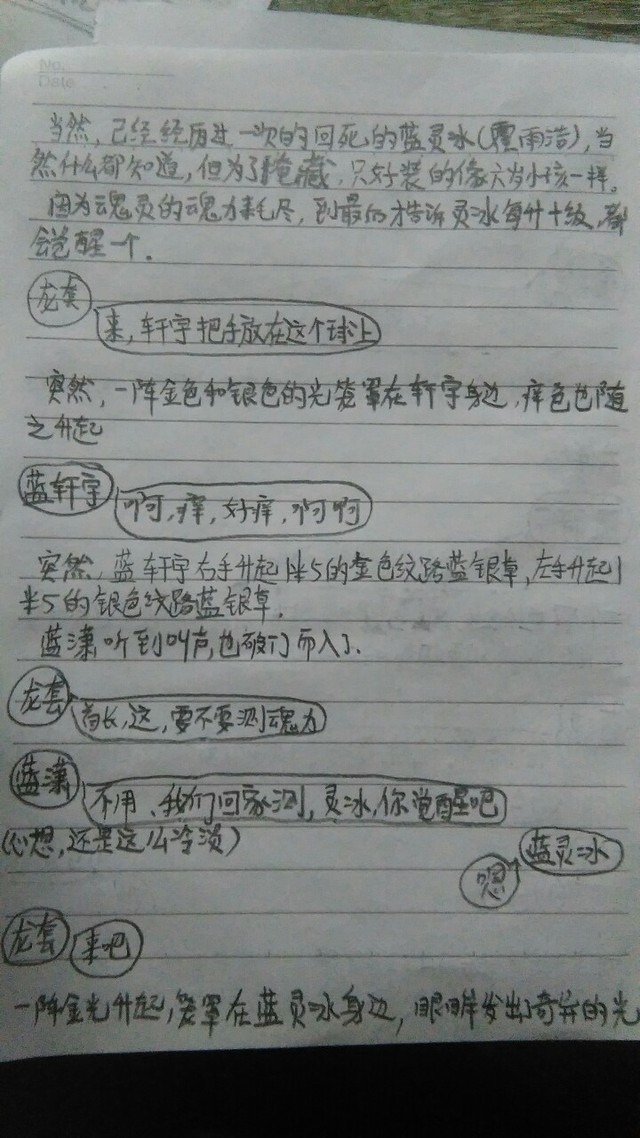 No.
Date
当然,已经经历过一次的回死的蓝灵冰(霍雨浩),当
然什么都知道,但为了掩藏,只好装的像六岁小孩一样。
因为魂灵的魂力耗尽,到最后才告诉灵冰每升十级,都
会觉醒一个.
龙套
来,轩宇把手放在这个球上
突然,一阵金色和银色的光笼罩在轩宇身边,痒色也随
之升起
蓝轩宇
啊,痒,好痒,啊啊
突然,蓝轩宇右手升起1米5的金色纹路蓝银草,左手升起1
米5的银色纹路蓝银草.
蓝潇听到叫声,也破门而入了.
龙套
首长,这,要不要测魂力
蓝潇
不用、我们回家测,灵冰,你觉醒吧
(心想,还是这么冷淡)
蓝灵冰
嗯
龙套
来吧
一阵金光升起,笼罩在蓝灵冰身边,眼眸发出奇异的光